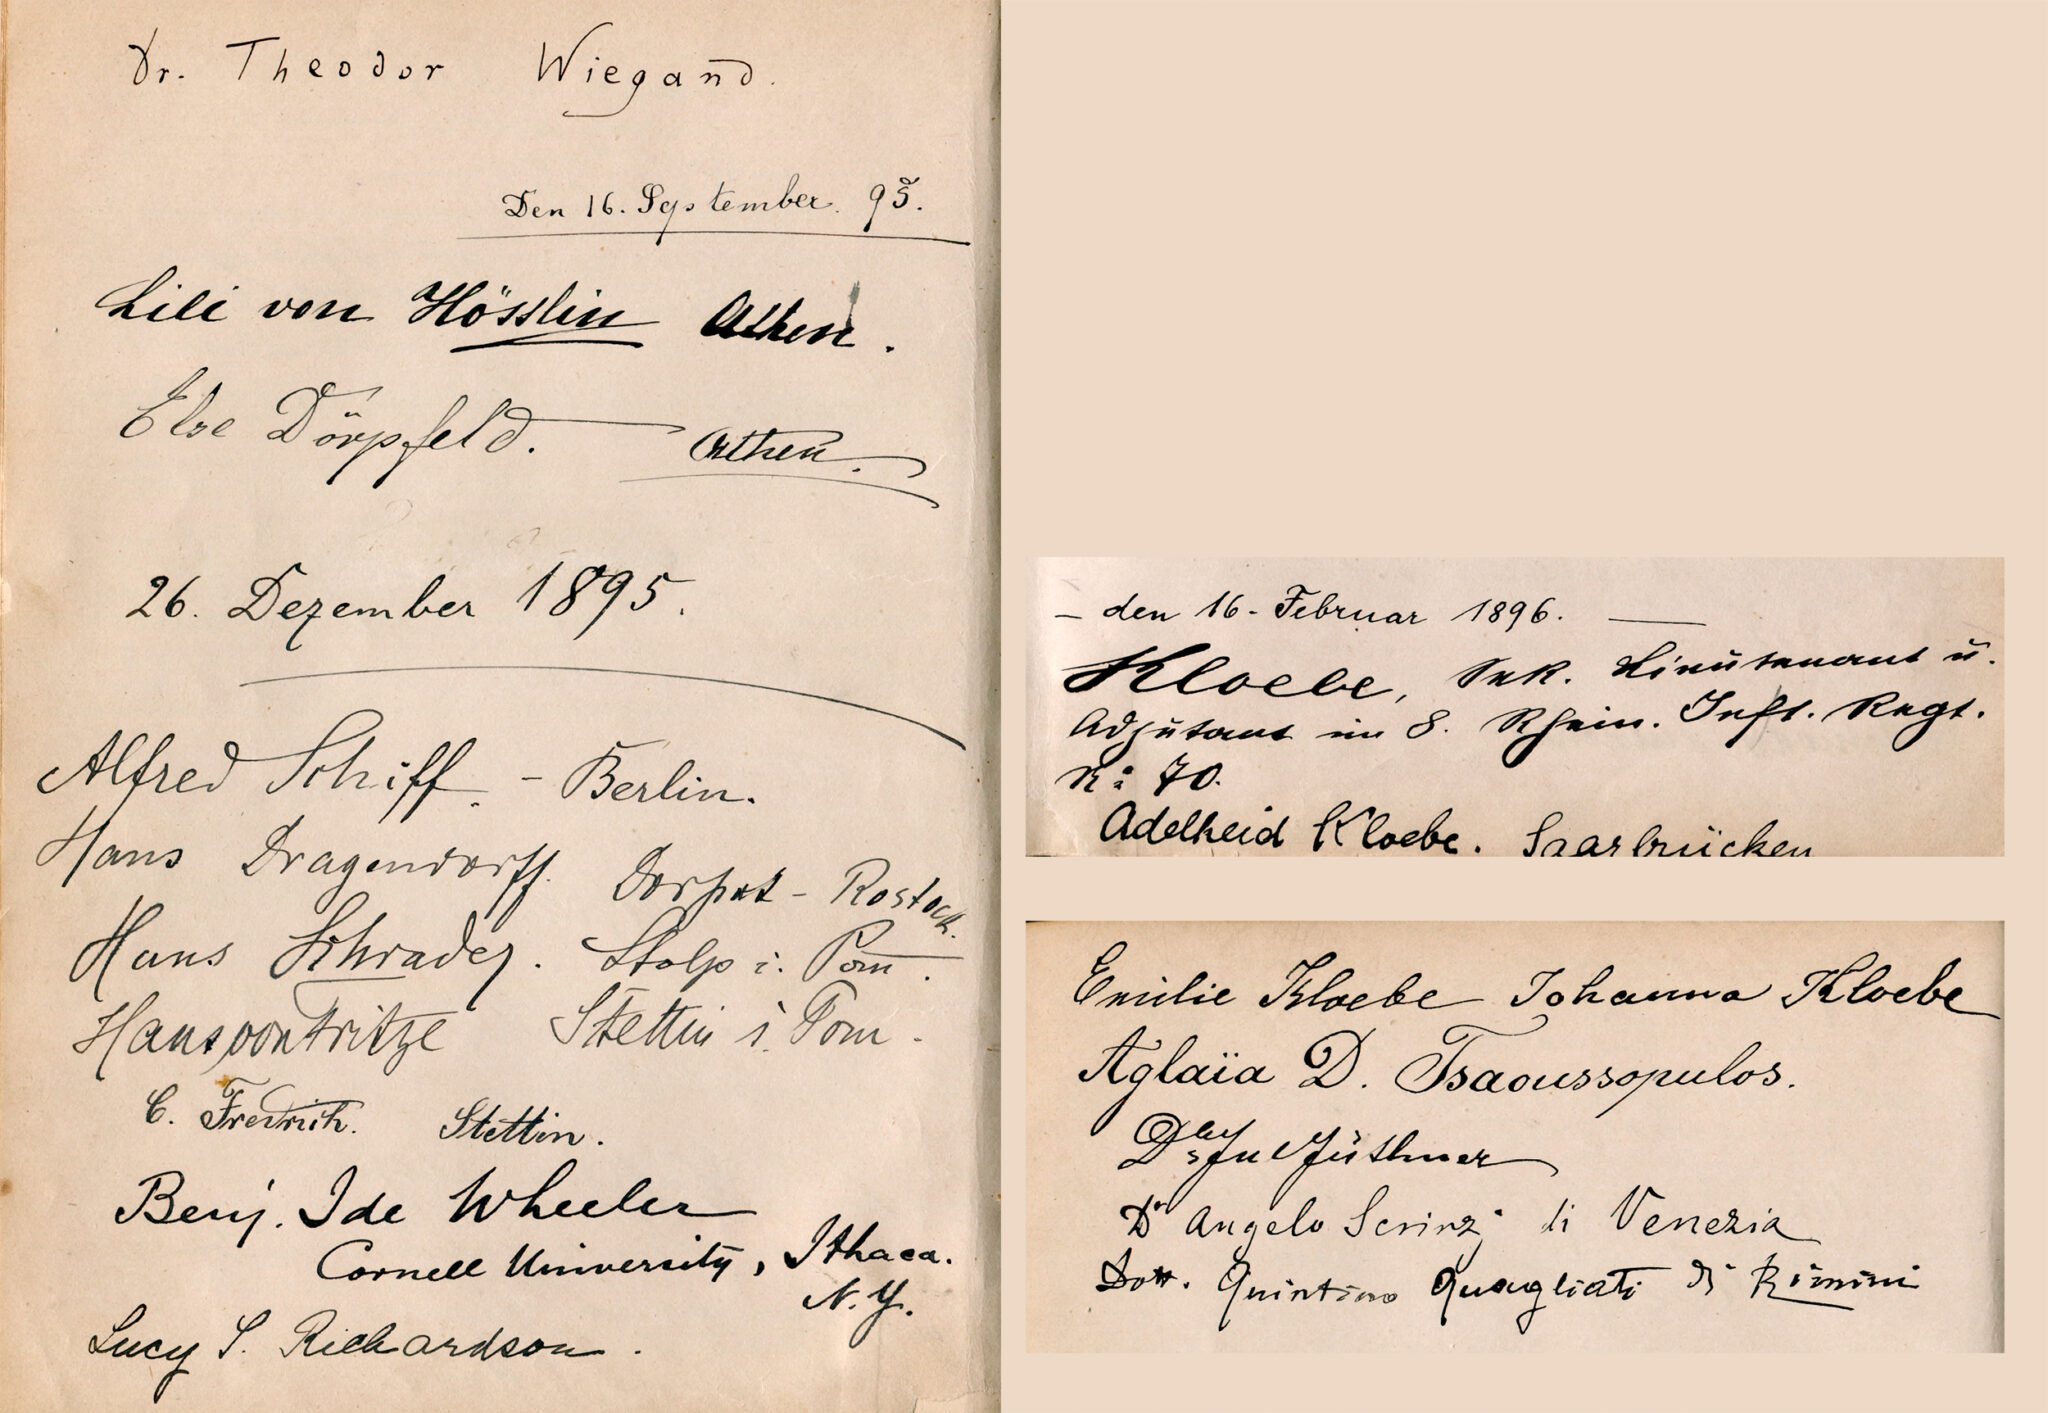 Dr. Theodor Wiegand.
Den 16. September. 95.
Lili von Hösslin Athen.
Else Dörpfeld. Athen.
26. Dezember 1895.
Alfred Schiff. - Berlin.
Hans Dragendorff. Dorpat - Rostock.
Hans Schrader. Stolp i. Pom.
Hans von Fritze Stettin i. Pom.
C. Fredrich. Stettin.
Benj. Ide Wheeler
Cornell University, Ithaca.
N.Y.
Lucy S. Richardson.
- den 16. Februar 1896. -
Kloebe, Sek. Lieutenant u.
Adjutant im 8. Rhein. Inft. Regt.
N: 70.
Adelheid Kloebe. Saarbrücken
Emilie Kloebe Johanna Kloebe
Aglaïa D. Tsaoussopulos.
Jüthner
Dr Angelo Scrinzi di Venezia
Dott. Quintino Quagliati di Rimini